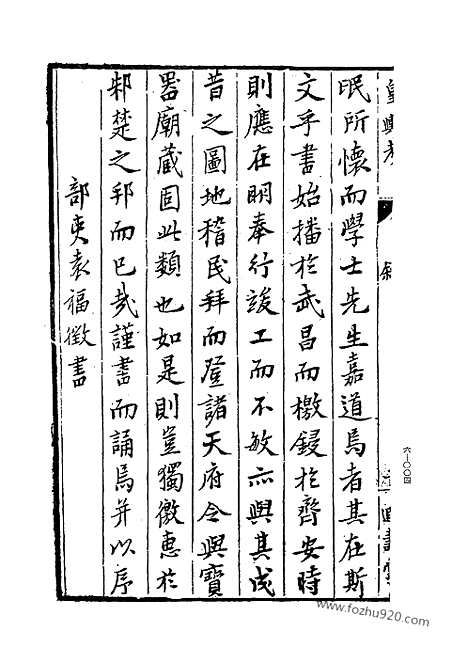 皇輿考
叙
氓所懷而學士先生嘉道焉者其在斯
文乎書始播於武昌而檄鋟於齊安時
則應在明奉行竣工而不敏亦與其成
昔之圖地稽民拜而登諸天府令與寶
器廟藏固此類也如是則豈獨徼惠於
邾楚之邦而已哉謹書而誦焉并以序
部吏袁福徵書
六—〇〇四
www.fozhu920.com